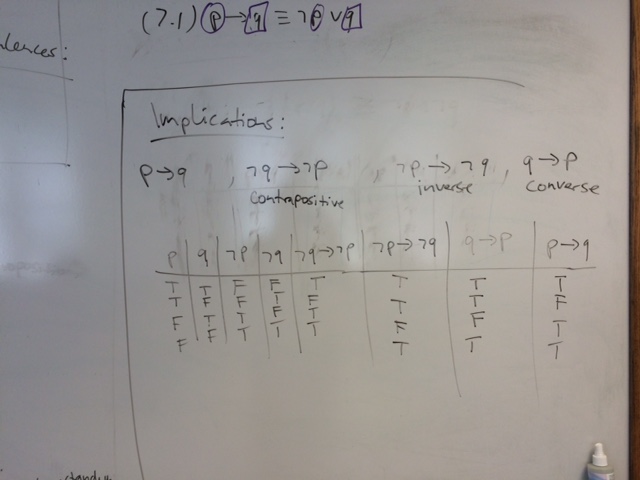 (7.1) p → q ≡ ¬p ∨ q
Implications:
p → q , ¬q → ¬p , ¬p → ¬q , q → p
contrapositive inverse converse
p q ¬p ¬q ¬q → ¬p ¬p → ¬q q → p p → q
T T F F T T T T
T F F T F T T F
F T T F T F F T
F F T T T T T T